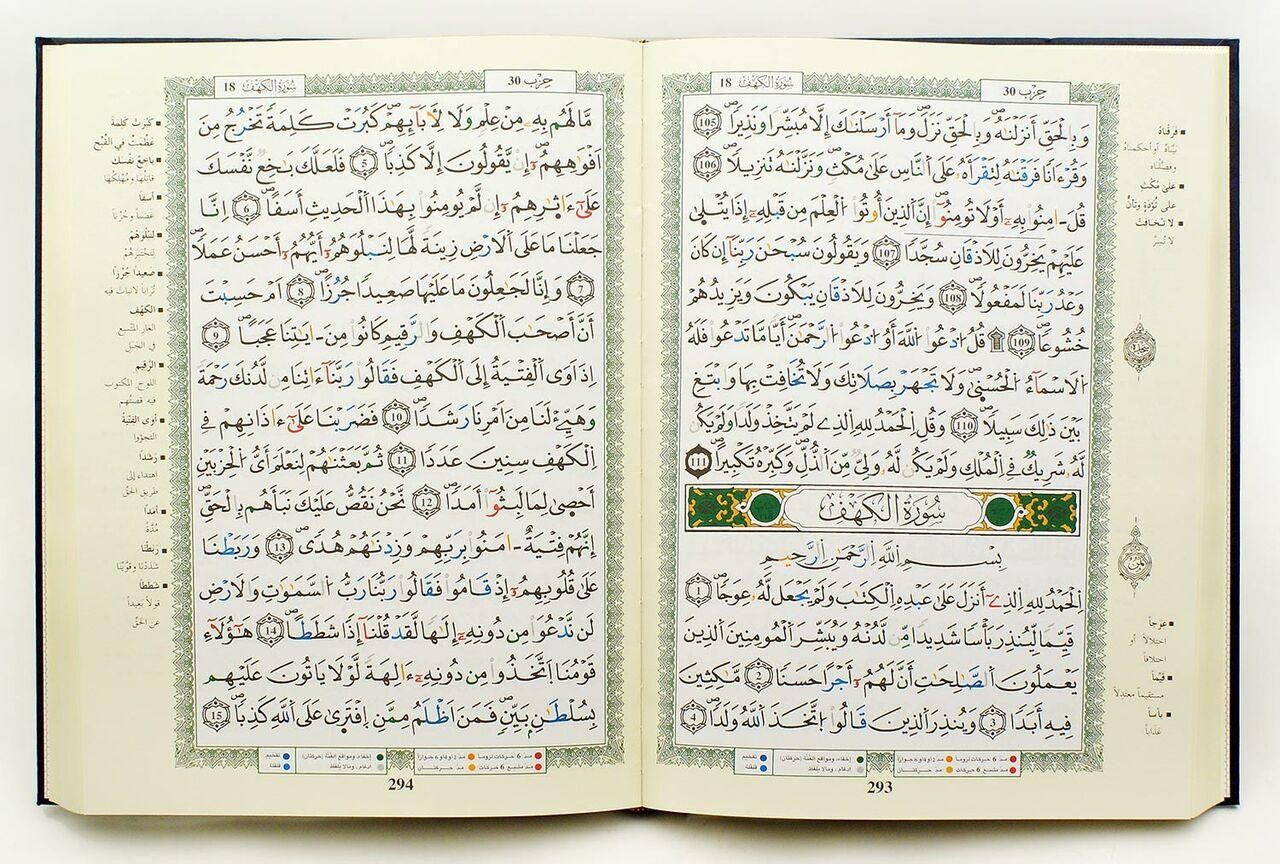 حِزْب 30
سُورَةُ الكَهْف 18
وَبِالْحَقِّ أَنزَلْنَٰهُ وَبِالْحَقِّ نَزَلَ وَمَا أَرْسَلْنَٰكَ إِلَّا مُبَشِّرًا وَنَذِيرًا 105
وَقُرْءَانًا فَرَقْنَٰهُ لِتَقْرَأَهُ عَلَى النَّاسِ عَلَىٰ مُكْثٍ وَنَزَّلْنَٰهُ تَنزِيلًا 106
قُلَ ـ امِنُوا بِهِ أَوْ لَا تُومِنُوا إِنَّ الَّذِينَ أُوتُوا الْعِلْمَ مِن قَبْلِهِ إِذَا يُتْلَىٰ
عَلَيْهِمْ يَخِرُّونَ لِلَاذْقَانِ سُجَّدًا 107 وَيَقُولُونَ سُبْحَٰنَ رَبِّنَا إِن كَانَ
وَعْدُ رَبِّنَا لَمَفْعُولًا 108 وَيَخِرُّونَ لِلَاذْقَانِ يَبْكُونَ وَيَزِيدُهُمْ
خُشُوعًا 109 ۩ قُلُ ادْعُوا اللَّهَ أَوُ ادْعُوا الرَّحْمَٰنَ أَيًّا مَّا تَدْعُوا فَلَهُ
الَاسْمَاءُ الْحُسْنَىٰ وَلَا تَجْهَرْ بِصَلَاتِكَ وَلَا تُخَافِتْ بِهَا وَابْتَغِ
بَيْنَ ذَٰلِكَ سَبِيلًا 110 وَقُلِ الْحَمْدُ لِلهِ الَّذِي لَمْ يَتَّخِذْ وَلَدًا وَلَمْ يَكُن
لَّهُ شَرِيكٌ فِي الْمُلْكِ وَلَمْ يَكُن لَّهُ وَلِيٌّ مِّنَ الذُّلِّ وَكَبِّرْهُ تَكْبِيرًا 111
سُورَةُ الكَهْفِ
بِسْمِ اللَّهِ الرَّحْمَٰنِ الرَّحِيمِ
الْحَمْدُ لِلهِ الَّذِي أَنزَلَ عَلَىٰ عَبْدِهِ الْكِتَٰبَ وَلَمْ يَجْعَل لَّهُ عِوَجًا 1
قَيِّمًا لِّيُنذِرَ بَأْسًا شَدِيدًا مِّن لَّدُنْهُ وَيُبَشِّرَ الْمُومِنِينَ الَّذِينَ
يَعْمَلُونَ الصَّٰلِحَٰتِ أَنَّ لَهُمُ أَجْرًا حَسَنًا 2 مَّٰكِثِينَ
فِيهِ أَبَدًا 3 وَيُنذِرَ الَّذِينَ قَالُوا اتَّخَذَ اللَّهُ وَلَدًا 4
■ فَرَقْنَاهُ
بَيَّنَّاهُ أو أحكمناه
وفصَّلناه
■ عَلَى مُكْثٍ
على تُؤَدَةٍ وتأنٍّ
■ لَا تُخَافِتْ
لا تُسِرَّ
■ عِوَجًا
اختلالاً أو
اختلافاً
■ قَيِّمًا
مستقيماً معتدلاً
■ بَأْسًا
عذاباً
مدّ 6 حركات لزوماً
مدّ 2 أو 4 أو 6 جوازاً
إخفاء، ومواقع الغنّة (حركتان)
تفخيم
مدّ مشبع 6 حركات
مدّ حركتان
إدغام، ومالا يلفظ
قلقلة
293
حِزْب 30
سُورَةُ الكَهْف 18
مَّا لَهُم بِهِ مِنْ عِلْمٍ وَلَا لِأَبَآئِهِمْ كَبُرَتْ كَلِمَةً تَخْرُجُ مِنَ
اَفْوَٰهِهِمُ إِن يَّقُولُونَ إِلَّا كَذِبًا 5 فَلَعَلَّكَ بَٰخِعٌ نَّفْسَكَ
عَلَىٰ ءَاثَٰرِهِمُ إِن لَّمْ يُومِنُوا بِهَٰذَا الْحَدِيثِ أَسَفًا 6 اِنَّا
جَعَلْنَا مَا عَلَى الَارْضِ زِينَةً لَّهَا لِنَبْلُوَهُمُ أَيُّهُمُ أَحْسَنُ عَمَلًا
7 وَإِنَّا لَجَٰعِلُونَ مَا عَلَيْهَا صَعِيدًا جُرُزًا 8 اَمْ حَسِبْتَ
أَنَّ أَصْحَٰبَ الْكَهْفِ وَالرَّقِيمِ كَانُوا مِنَ ـ ايَٰتِنَا عَجَبًا 9
إِذَ اوَى الْفِتْيَةُ إِلَى الْكَهْفِ فَقَالُوا رَبَّنَا ءَاتِنَا مِن لَّدُنكَ رَحْمَةً
وَهَيِّئْ لَنَا مِنَ اَمْرِنَا رَشَدًا 10 فَضَرَبْنَا عَلَىٰ ءَاذَانِهِمْ فِي
الْكَهْفِ سِنِينَ عَدَدًا 11 ثُمَّ بَعَثْنَٰهُمْ لِنَعْلَمَ أَيُّ الْحِزْبَيْنِ
أَحْصَىٰ لِمَا لَبِثُوا أَمَدًا 12 نَّحْنُ نَقُصُّ عَلَيْكَ نَبَأَهُم بِالْحَقِّ
إِنَّهُمْ فِتْيَةٌ ـ امَنُوا بِرَبِّهِمْ وَزِدْنَٰهُمْ هُدًى 13 وَرَبَطْنَا
عَلَىٰ قُلُوبِهِمُ إِذْ قَامُوا فَقَالُوا رَبُّنَا رَبُّ السَّمَٰوَٰتِ وَالَارْضِ
لَن نَّدْعُوَا مِن دُونِهِ إِلَٰهًا لَّقَدْ قُلْنَا إِذًا شَطَطًا 14 هَٰؤُلَآءِ
قَوْمُنَا اتَّخَذُوا مِن دُونِهِ ءَالِهَةً لَّوْلَا يَاتُونَ عَلَيْهِم
بِسُلْطَٰنٍ بَيِّنٍ فَمَنَ اَظْلَمُ مِمَّنِ افْتَرَىٰ عَلَى اللَّهِ كَذِبًا 15
■ كَبُرَتْ كَلِمَةً
عظُمَتْ في القُبْح
■ بَاخِعٌ نَّفْسَكَ
قاتلُها ومُهلكُها
■ أَسَفًا
غضباً وحُزْناً
■ لِنَبْلُوَهُمْ
لنختبرهم
■ صَعِيدًا جُرُزًا
تراباً لا نبات فيه
■ الْكَهْفِ
الغار المتسع
في الجبل
■ الرَّقِيمِ
اللوح المكتوب
فيه قصتُهم
■ أَوَى الفِتْيَةُ
التجؤوا
■ رَشَدًا
اهتداءً إلى
طريق الحقّ
■ أَمَدًا
مُدَّةً
■ رَبَطْنَا
شدَدْنا وقوَّيْنا
■ شَطَطًا
قولاً بعيداً
عن الحقّ
مدّ 6 حركات لزوماً
مدّ 2 أو 4 أو 6 جوازاً
إخفاء، ومواقع الغنّة (حركتان)
تفخيم
مدّ مشبع 6 حركات
مدّ حركتان
إدغام، ومالا يلفظ
قلقلة
294